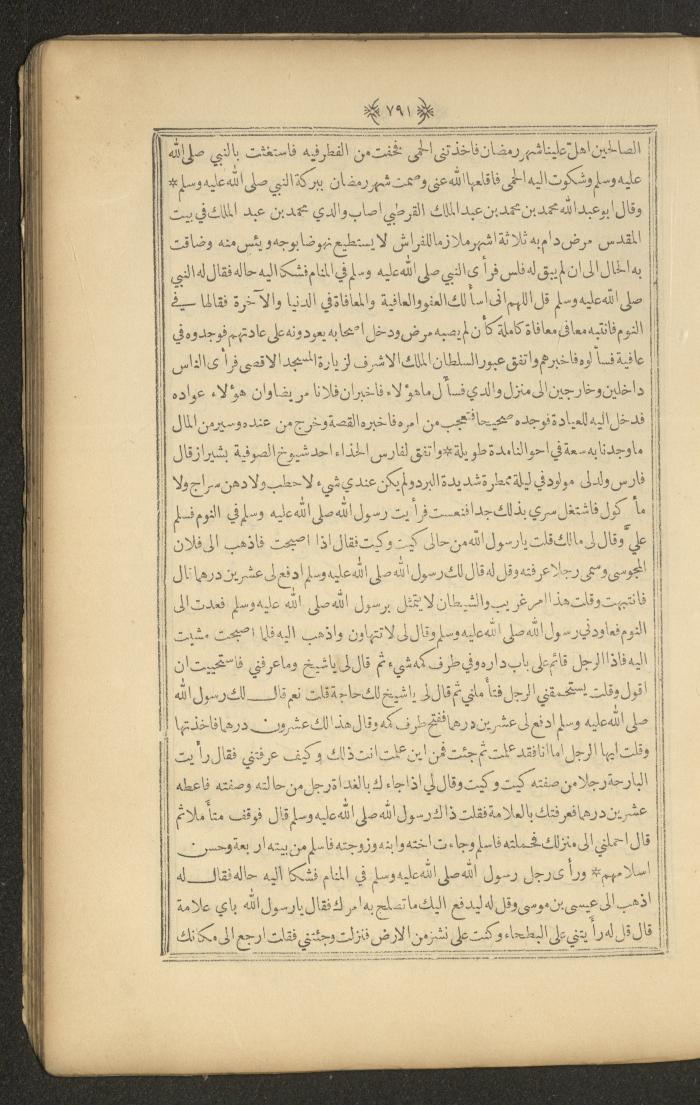 ﴿ ٧٩١ ﴾
الصالحين اهلّ علينا شهر رمضان فاخذتني الحمى فخفت من الفطر فيه فاستغثت بالنبي صلى الله
عليه وسلم وشكوت اليه الحمى فاقلعها الله عني وصمت شهر رمضان ببركة النبي صلى الله عليه وسلم *
وقال ابو عبد الله محمد بن محمد بن عبد الملك القرطبي اصاب والدي محمد بن عبد الملك في بيت
المقدس مرض دام به ثلاثة اشهر ملازما للفراش لا يستطيع نهوضا بوجه ويئس منه وضاقت
به الحال الى ان لم يبق له فلس فرأى النبي صلى الله عليه وسلم في المنام فشكا اليه حاله فقال له النبي
صلى الله عليه وسلم قل اللهم اني اسألك العفو والعافية والمعافاة في الدنيا والآخرة فقالها في
النوم فانتبه معافى معافاة كاملة كأن لم يصبه مرض ودخل اصحابه يعودونه على عادتهم فوجدوه في
عافية فسألوه فاخبرهم واتفق عبور السلطان الملك الاشرف لزيارة المسجد الاقصى فرأى الناس
داخلين وخارجين الى منزل والدي فسأل ما هؤلاء فاخبر ان فلانا مريض وان هؤلاء عواده
فدخل اليه للعيادة فوجده صحيحا فتعجب من امره فاخبره القصة وخرج من عنده وسير من المال
ما وجدنا به سعة في احوالنا مدة طويلة * واتفق لفارس الحذاء احد شيوخ الصوفية بشيراز قال
فارس ولد لي مولود في ليلة ممطرة شديدة البرد ولم يكن عندي شيء لا حطب ولا دهن سراج ولا
مأكول فاشتغل سري بذلك جدا فنعست فرأيت رسول الله صلى الله عليه وسلم في النوم فسلم
عليّ وقال لي مالك قلت يا رسول الله من حالي كيت وكيت فقال اذا اصبحت فاذهب الى فلان
المجوسي وسمى رجلا عرفته وقل له قال لك رسول الله صلى الله عليه وسلم ادفع لي عشرين درهما قال
فانتبهت وقلت هذا امر غريب والشيطان لا يتمثل برسول الله صلى الله عليه وسلم فعدت الى
النوم فعاودني رسول الله صلى الله عليه وسلم وقال لي لا تتهاون واذهب اليه فلما اصبحت مشيت
اليه فاذا الرجل قائم على باب داره وفي طرف كمه شيء ثم قال لي يا شيخ وما عرفني فاستحييت ان
اقول وقلت يستحمقني الرجل فتأملني ثم قال لي يا شيخ لك حاجة قلت نعم قال لك رسول الله
صلى الله عليه وسلم ادفع لي عشرين درهما ففتح طرف كمه وقال هذا لك عشرون درهما فاخذتها
وقلت ايها الرجل اما انا فقد علمت ثم جئت فمن اين علمت انت ذالك وكيف عرفتني فقال رأيت
البارحة رجلا من صفته كيت وكيت وقال لي اذا جاءك بالغداة رجل من حالته وصفته فاعطه
عشرين درهما فعرفتك بالعلامة فقلت ذاك رسول الله صلى الله عليه وسلم قال فوقف متأملا ثم
قال احملني الى منزلك فحملته فاسلم وجاءت اخته وابنه وزوجته فاسلم من بيته اربعة وحسن
اسلامهم * ورأى رجل رسول الله صلى الله عليه وسلم في المنام فشكا اليه حاله فقال له
اذهب الى عيسى بن موسى وقل له ليدفع اليك ما تصلح به امرك فقال يا رسول الله باي علامة
قال قل له رأيتني على البطحاء وكنت على نشز من الارض فنزلت وجئتني فقلت ارجع الى مكانك